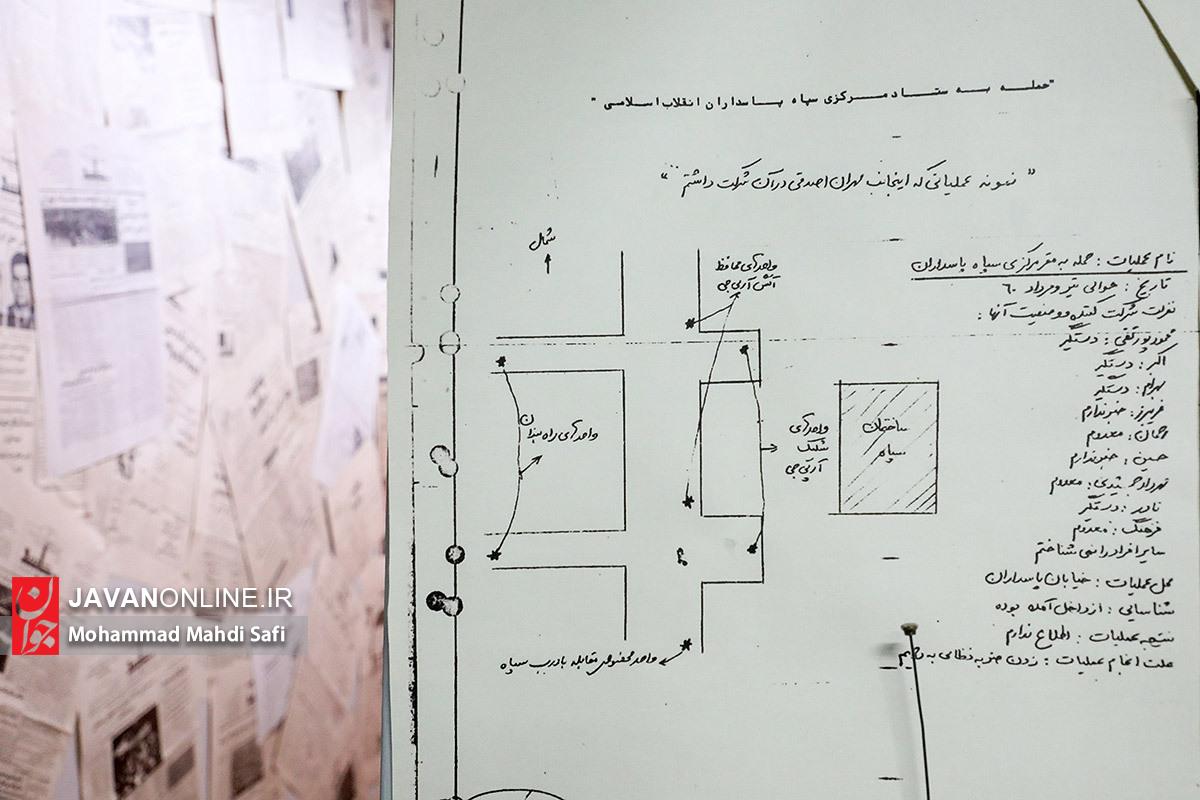 "حمله به ستاد مرکزی سپاه پاسداران انقلاب اسلامی"
"نمونه عملیاتی که اینجانب مهران اصدقی در آن شرکت داشتم"
شمال
واحدهای محافظ
آتش آر پی جی
واحدهای راه بندان
واحدهای
شلیک
آر پی جی
ساختمان
سپاه
واحد مخصوص مقابله با درب سپاه
نام عملیات : حمله به مقر مرکزی سپاه پاسداران
تاریخ : حوالی تیر و مرداد ۶۰
نفرات شرکت کننده و وضعیت آنها :
محمود پورتقی : دستگیر
اکبر : دستگیر
بهرام : دستگیر
فریبرز : خبر ندارم
رحمان : معدوم
حسین : خبر ندارم
مهرداد : معدوم
نادر : دستگیر
فرهنگ : معدوم
سایر افراد را نمی شناختم
محل عملیات : خیابان پاسداران
شناسایی : از داخل آمده بوده
نتیجه عملیات : اطلاع ندارم
علت انجام عملیات : زدن ضربه نظامی به رژیم
جوان
JAVANONLINE.IR
Mohammad Mahdi Safi